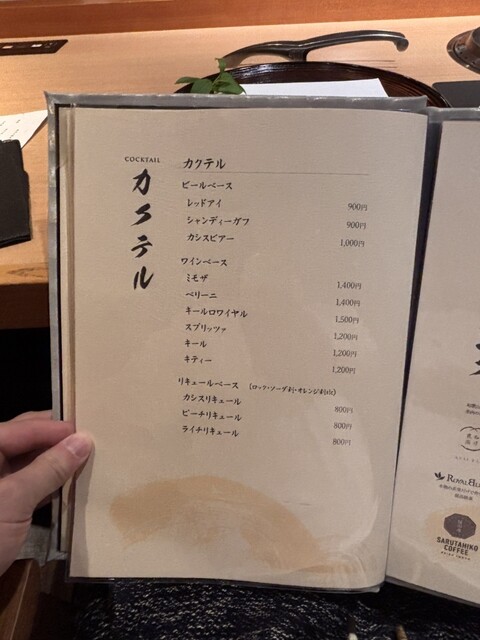 COCKTAIL
カクテル
カクテル
ビールベース
レッドアイ 900円
シャンディーガフ 900円
カシスビアー 1,000円
ワインベース
ミモザ 1,400円
ベリーニ 1,400円
キールロワイヤル 1,500円
スプリッツァ 1,200円
キール 1,200円
キティー 1,200円
リキュールベース (ロック・ソーダ割・オレンジ割etc)
カシスリキュール 800円
ピーチリキュール 800円
ライチリキュール 800円
SARUTAHIKO
COFFEE